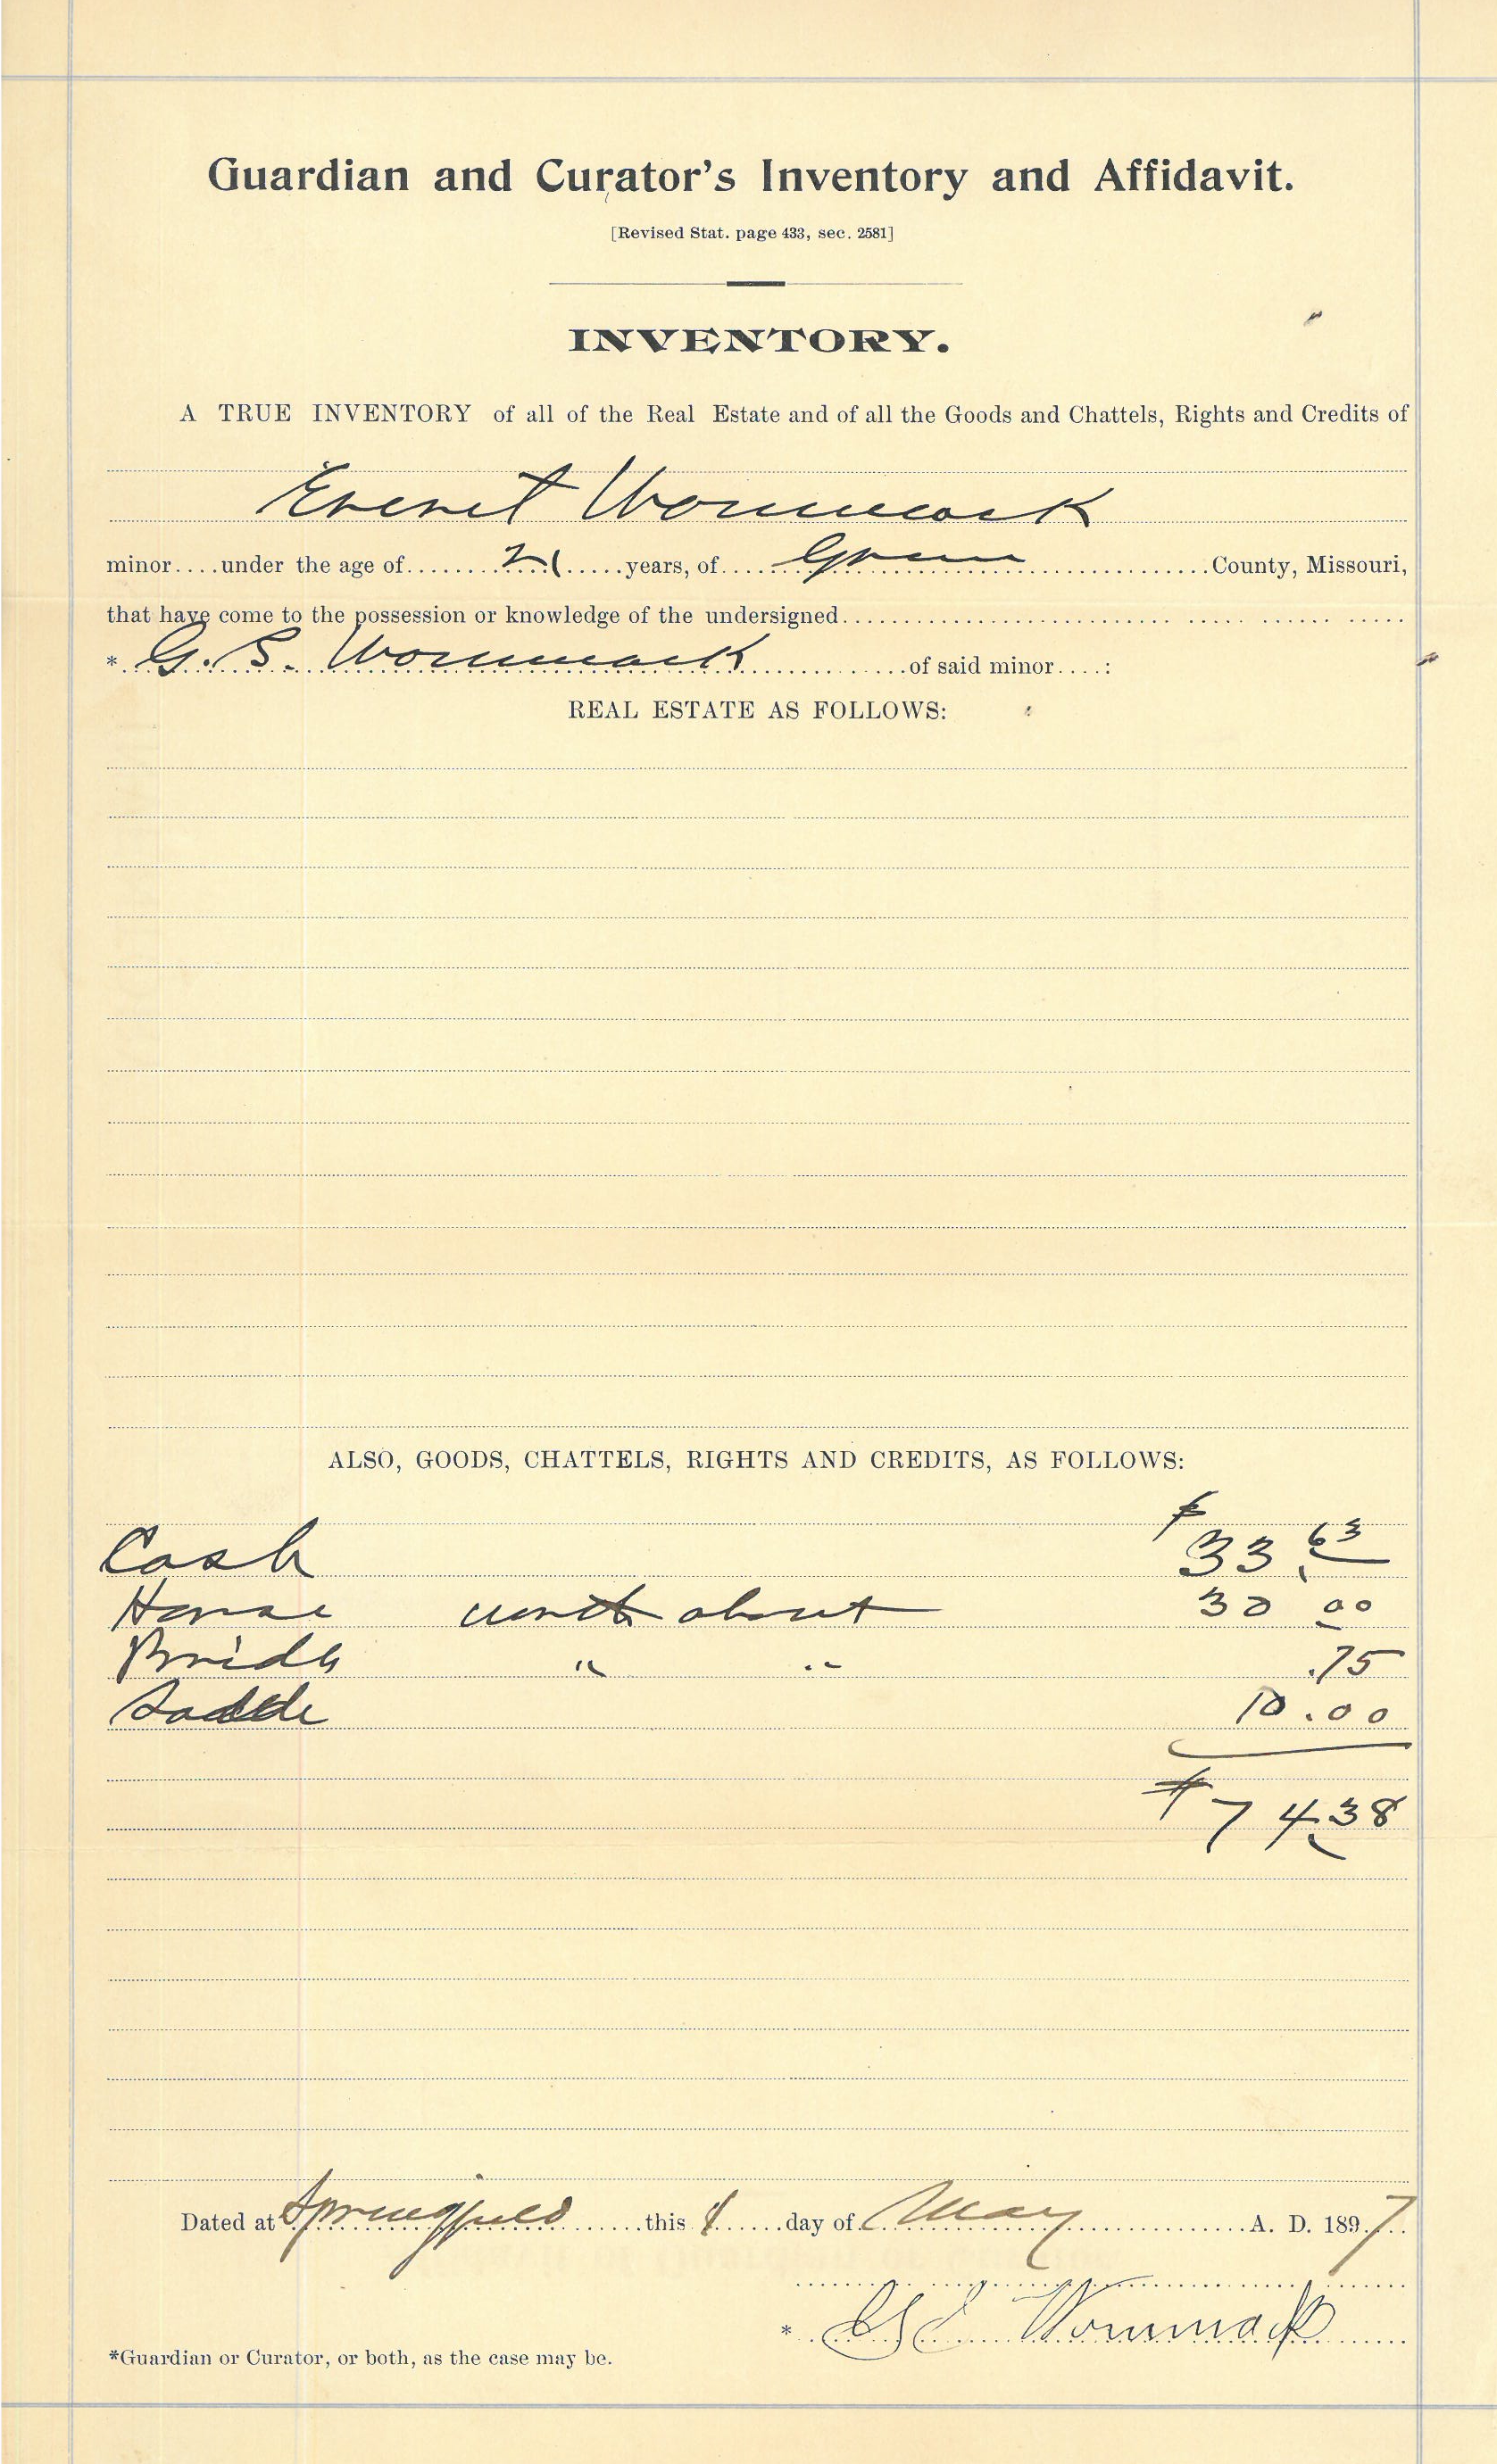 Guardian and Curator's Inventory and Affidavit.
[Revised Stat. page 433, sec. 2581]
INVENTORY.
A TRUE INVENTORY of all of the Real Estate and of all the Goods and Chattels, Rights and Credits of
Everet Wommack
minor....under the age of........21.....years, of....Green.................County, Missouri,
that have come to the possession or knowledge of the undersigned
*G. S. Wommack..........of said minor....:
REAL ESTATE AS FOLLOWS:
ALSO, GOODS, CHATTELS, RIGHTS AND CREDITS, AS FOLLOWS:
Cash $33.63
Horse worth about 30 00
Bridle " " .75
Saddle 10.00
$74.38
Dated at Springfield.......this 8......day of May..............A. D. 1897..
* G S Wommack
*Guardian or Curator, or both, as the case may be.